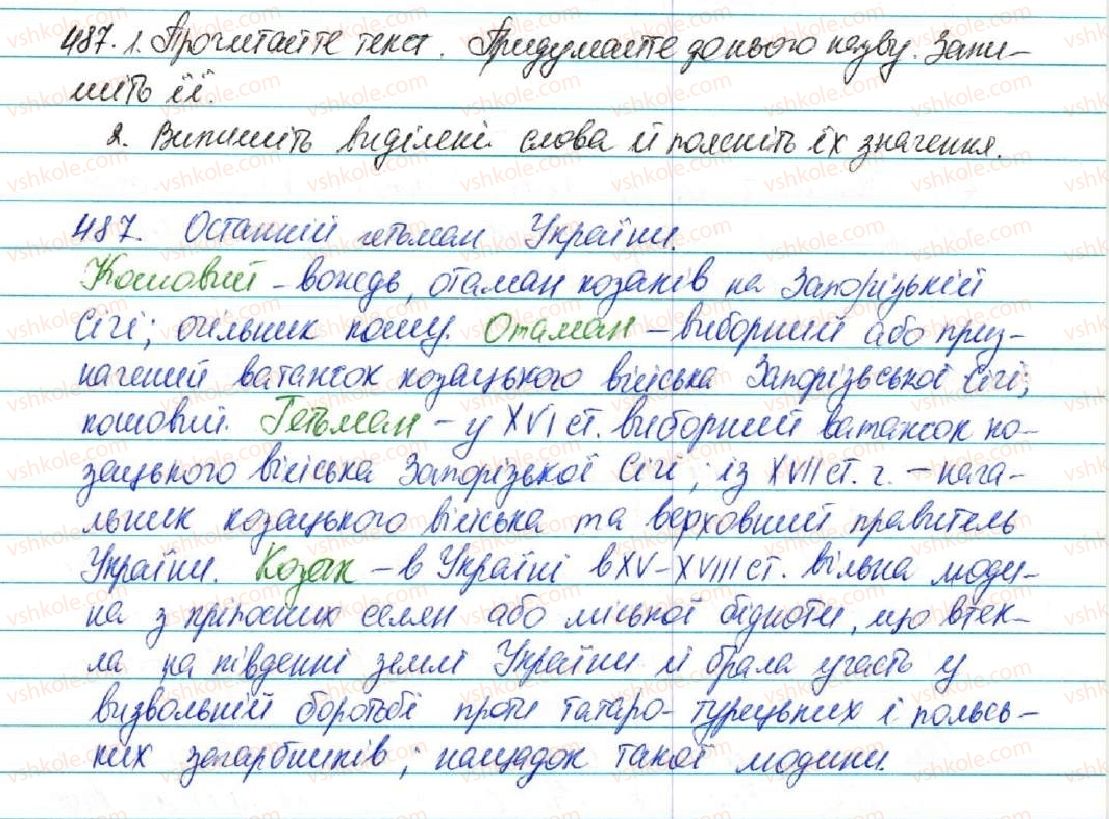 487. 1. Прочитайте текст. Придумайте до нього назву. Запи-
шіть її.
2. Випишіть виділені слова й поясніть їх значення.
487. Останній гетьман України.
Кошовий – вождь, отаман козаків на Запорізькій
Січі; очільник кошу. Отаман – виборний або приз-
начений ватажок козацького війська Запорізської Січі;
кошовий. Гетьман – у XVI ст. виборний ватажок ко-
зацького війська Запорізької Січі; із XVII ст. г. – нача-
льник козацького війська та верховний правитель
України. Козак – в Україні в XV–XVIII ст. вільна люди-
на з кріпосних селян або міської бідноти, що втек-
ла на південні землі України й брала участь у
визвольній боротьбі проти татаро-турецьких і польсь-
ких загарбників; нащадок такої людини.